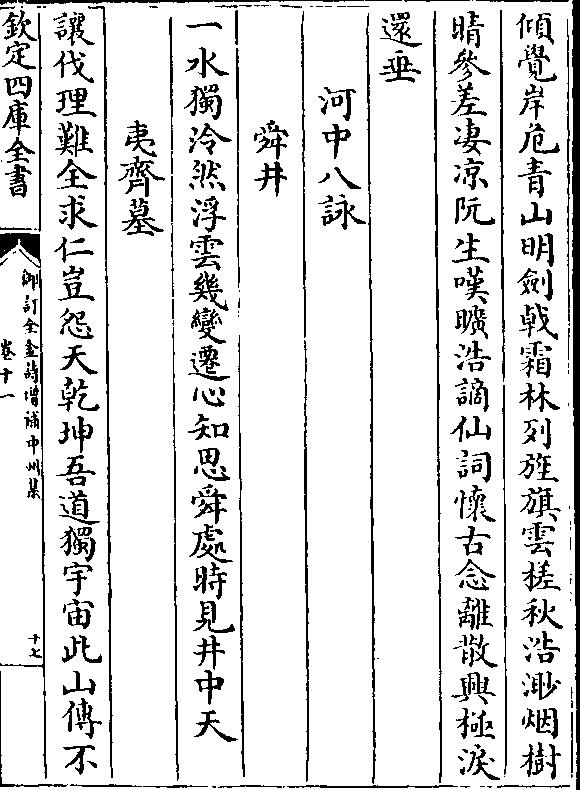 傾覺岸危青山明劍㦸霜林列旌旗雲槎秋浩渺烟樹
晴參差凄凉阮生嘆曠浩謫仙詞懷古念離散興極淚
還垂
河中八詠
舜井
一水獨泠然浮雲幾變遷心知思舜處時見井中天
夷齊墓
讓伐理難全求仁豈怨天乾坤吾道獨宇宙此山傳不
欽定四庫全書
御訂全金詩增補中州集
卷十一
十七